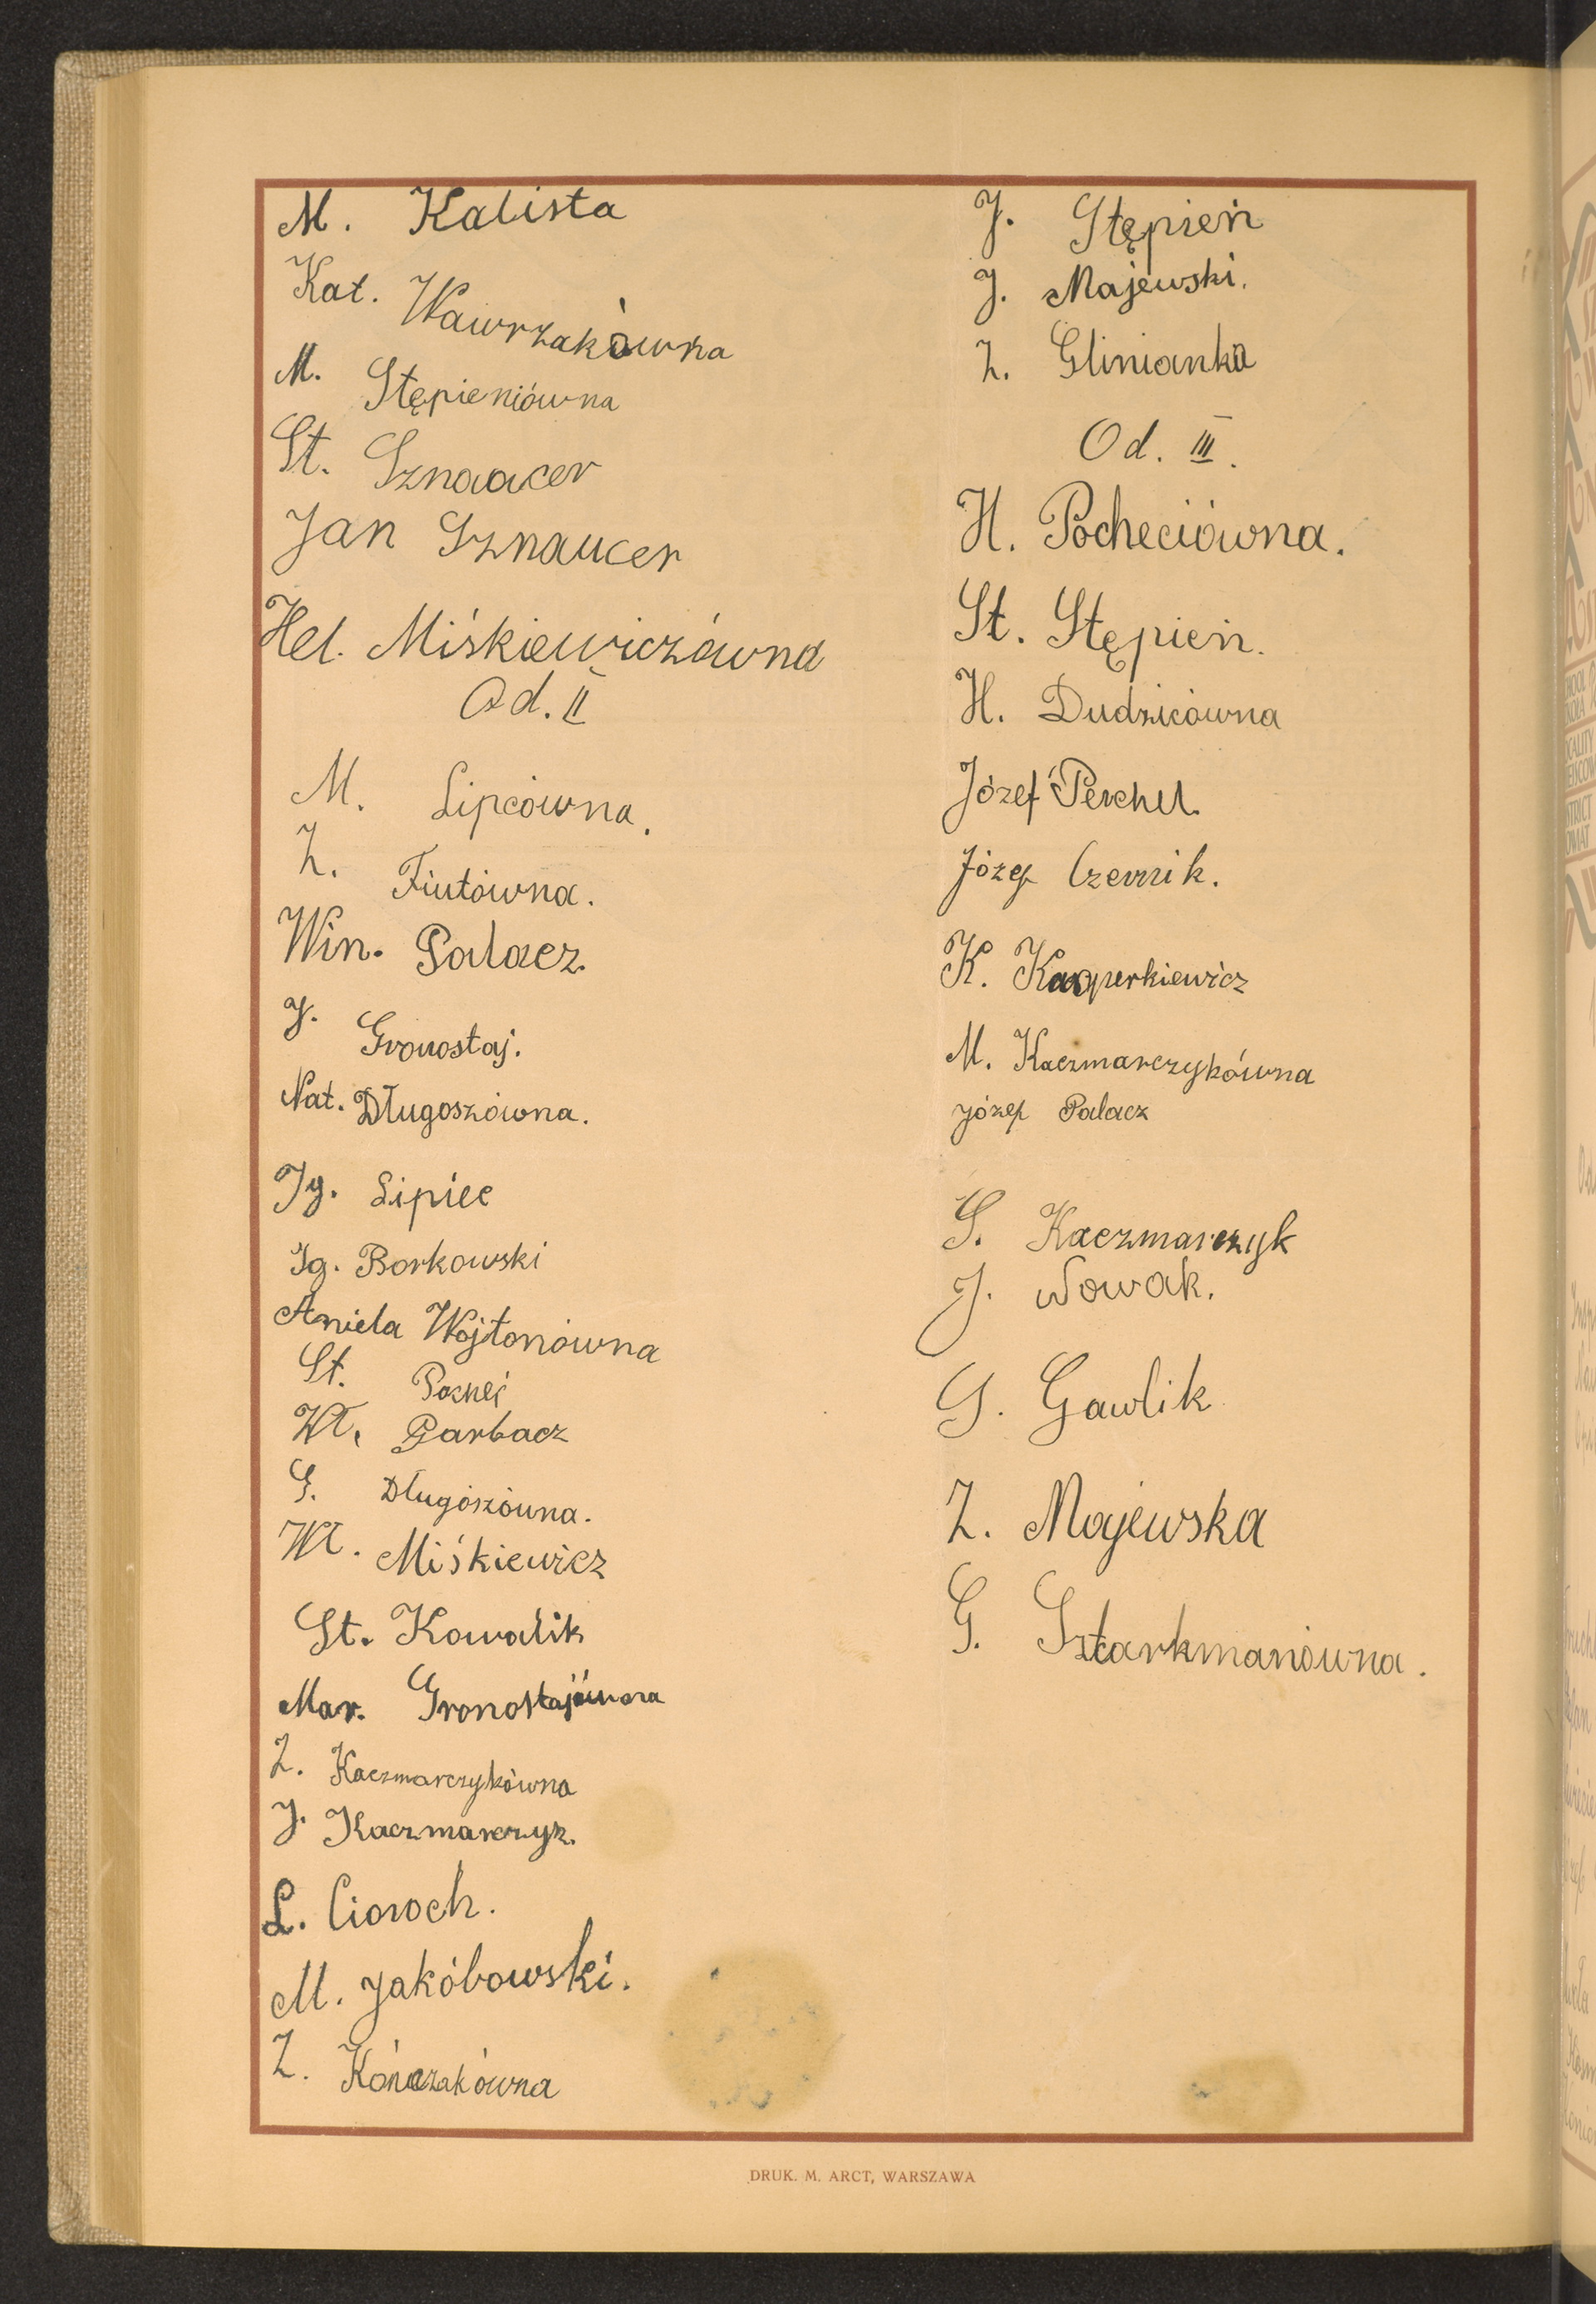 M. Kalista
Kat. Wawrzakówna
M. Stępieniówna
St. Sznaucer
Jan Sznaucer
Hel. Miśkiewiczówna
Od. II
M. Lipcówna.
Z. Fiutówna.
Win. Palacz.
J. Gronostaj.
Nat. Długoszówna.
Ig. Lipiec
Ig. Borkowski
Aniela Wojtonówna
St.
Wł. Garbacz
G. Długoszówna.
Wł. Miśkiewicz
St. Kowalik
Mar. Gronostajówna
Z. Kaczmarczykówna
J. Kaczmarczyk.
L. Cioroch.
M. Jakóbowski.
Z. Kończakówna
J. Stępień
J. Majewski.
Z. Glinianka
Od. III.
H. Pocheciówna.
St. Stępień.
H. Dudzicówna
Józef Perchel
Józef Czernik.
K. Kasperkiewicz
M. Kaczmarczykówna
Józef Palacz
S. Kaczmarczyk
J. Nowak.
G. Gawlik
Z. Majewska
G. Sztarkmanówna.
DRUK. M. ARCT, WARSZAWA